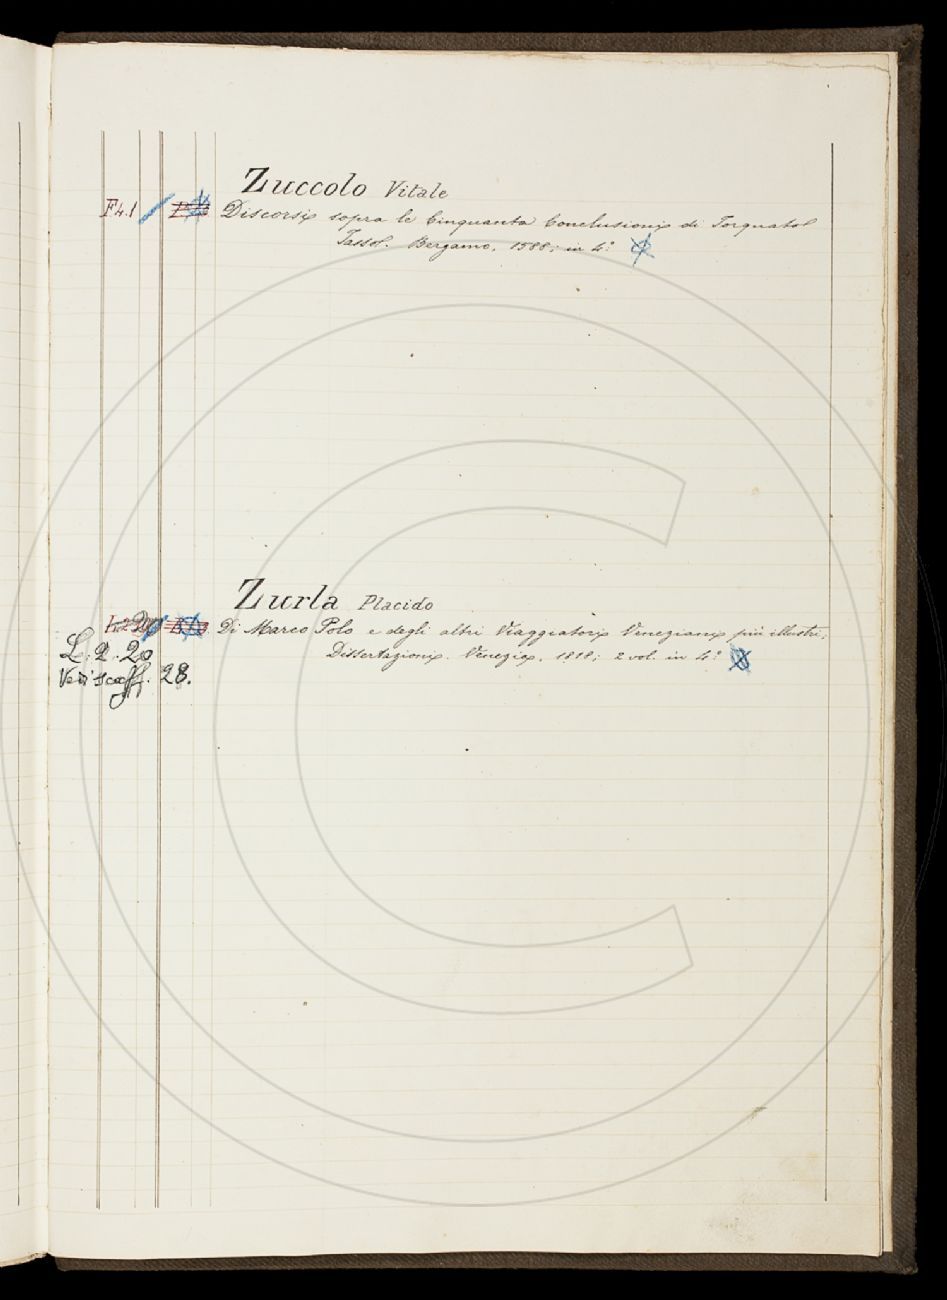 Zuccolo Vitale
F4.1 Discorsi sopra le Cinquanta Conclusioni di Torquato
Tasso. Bergamo, 1588; in 4°
Zurla Placido
Di Marco Polo e degli altri Viaggiatori Veneziani più illustri,
L. 2. 20
Dissertazioni. Venezia, 1818; 2 vol. in 4°
Vedi scaff. 28.